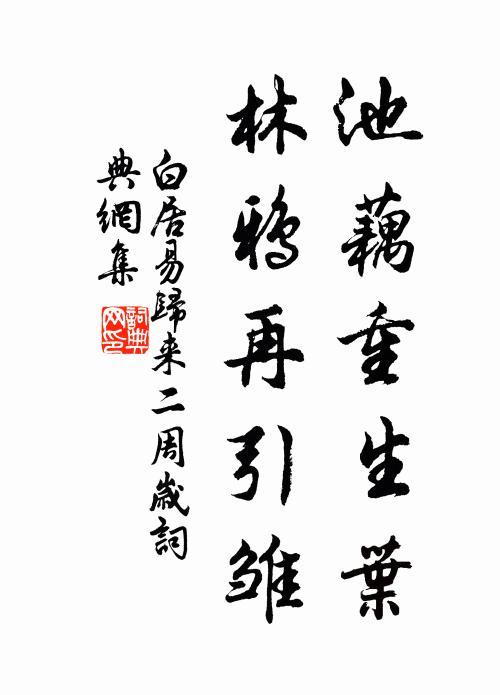 池藕重生葉
林鴉再引雛
白居易歸来二周歲詞
典網集
詞典
网印